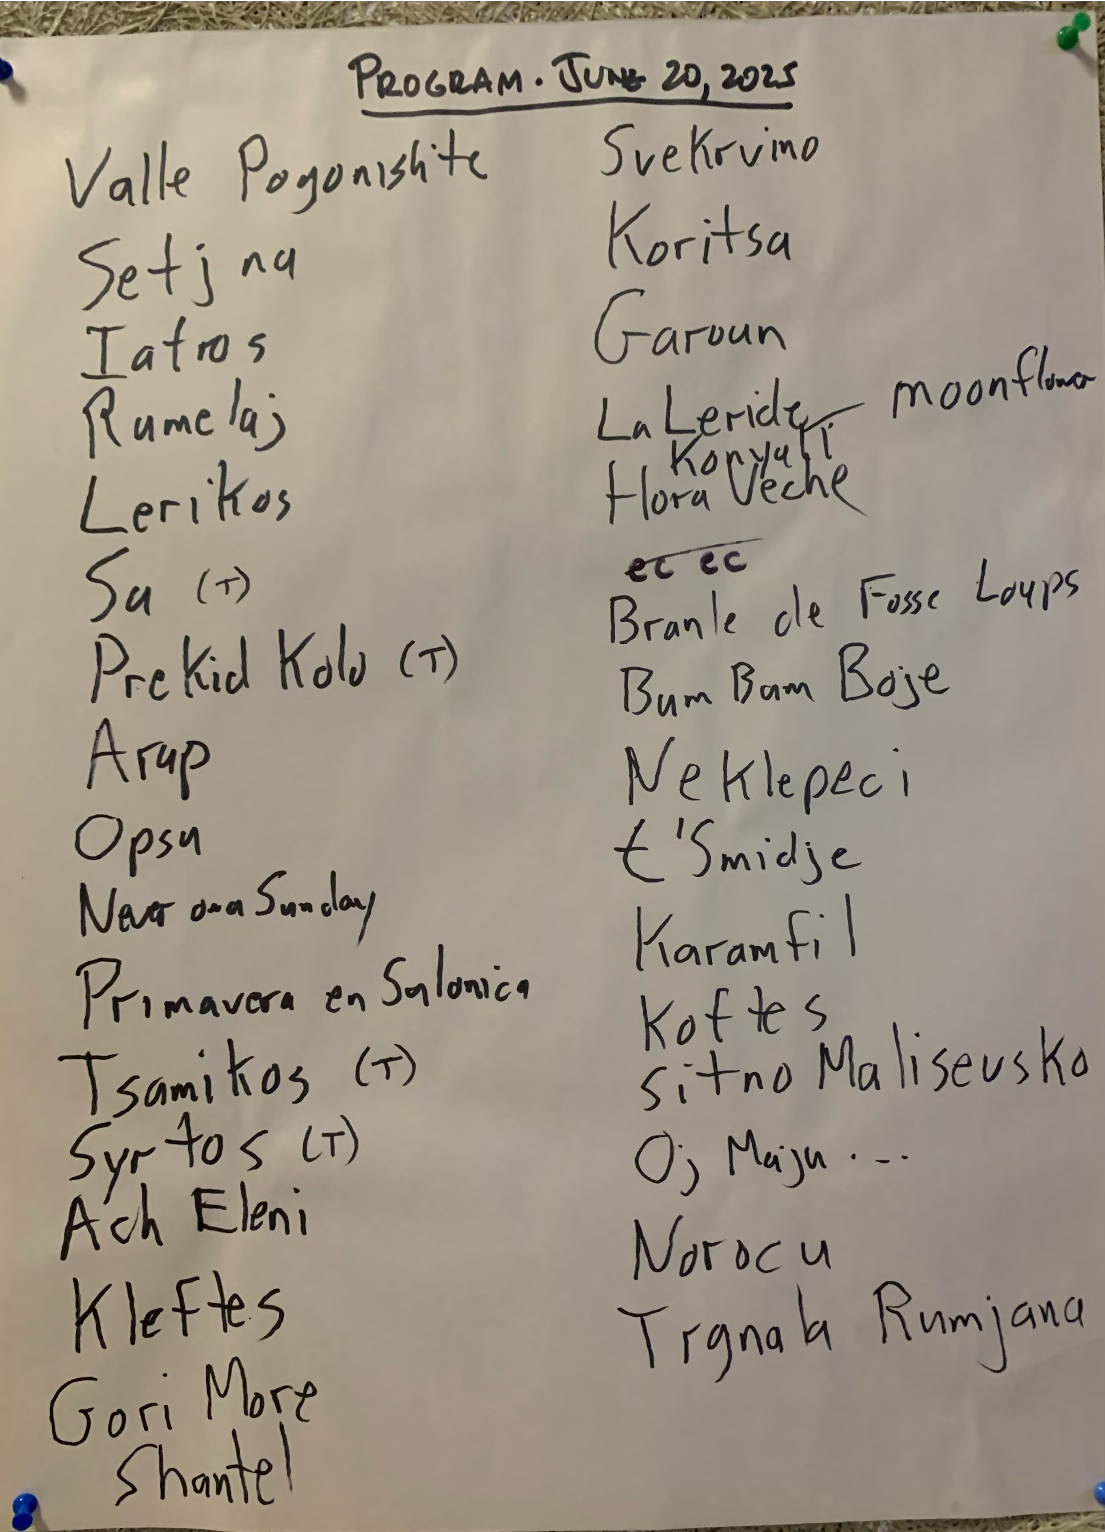 PROGRAM. JUNE 20, 2025
Valle Pogonishite
Setjna
Iatros
Rumelaj
Lerikos
Sa (T)
Prekid Kolo (T)
Arap
Opsa
Never on a Sunday
Primavera en Salonica
Tsamikos (T)
Syrtos (T)
Ach Eleni
Kleftes
Gori More
Shantel
Svekrvino
Koritsa
Garoun
La Leride moonflower
Konyali
Hora Veche
ec ec
Branle de Fosse Loups
Bum Bam Boje
Ne Klepeci
t'Smidje
Karamfil
Koftes
sitno Malisevsko
Oj Maju ...
Norocu
Trgnala Rumjana